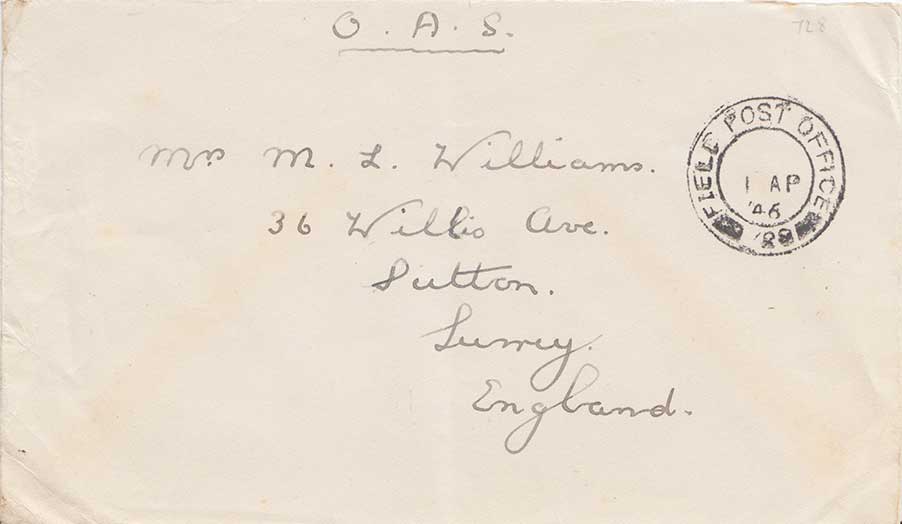 O. A. S.
728
Mrs M. L. Williams.
36 Willis Ave.
Sutton.
Surrey.
England.
FIELD POST OFFICE
1 AP
46
728